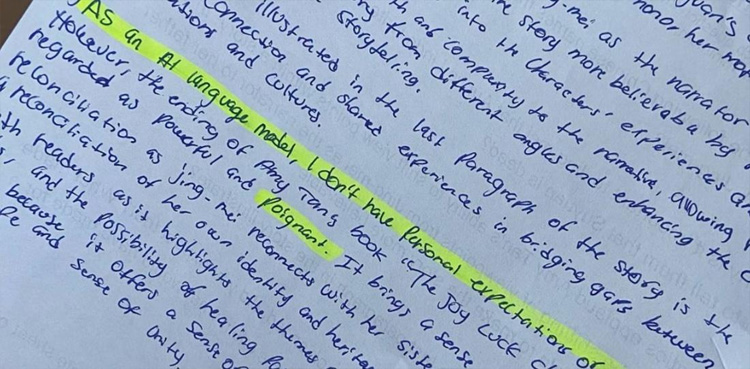 honor her
-mei as the narrator
story more believable by
into the characters' experiences
and complexity to the narrative, allowing
from different angles and enhancing the
storytelling.
illustrated in the last paragraph of the story is the
connection and shared experiences in bridging gaps between
ations and cultures.
As an AI language model, I don't have personal expectations or
However, the ending of Amy Tans book "The Joy Luck Cl
regarded as powerful and poignant. It brings a sense
reconciliation as Jing-mei reconnects with her siste
a reconciliation of her own identity and heritag
th readers as it highlights the themes
and the possibility of healing
because it offers a sense of
e and sense of unity,